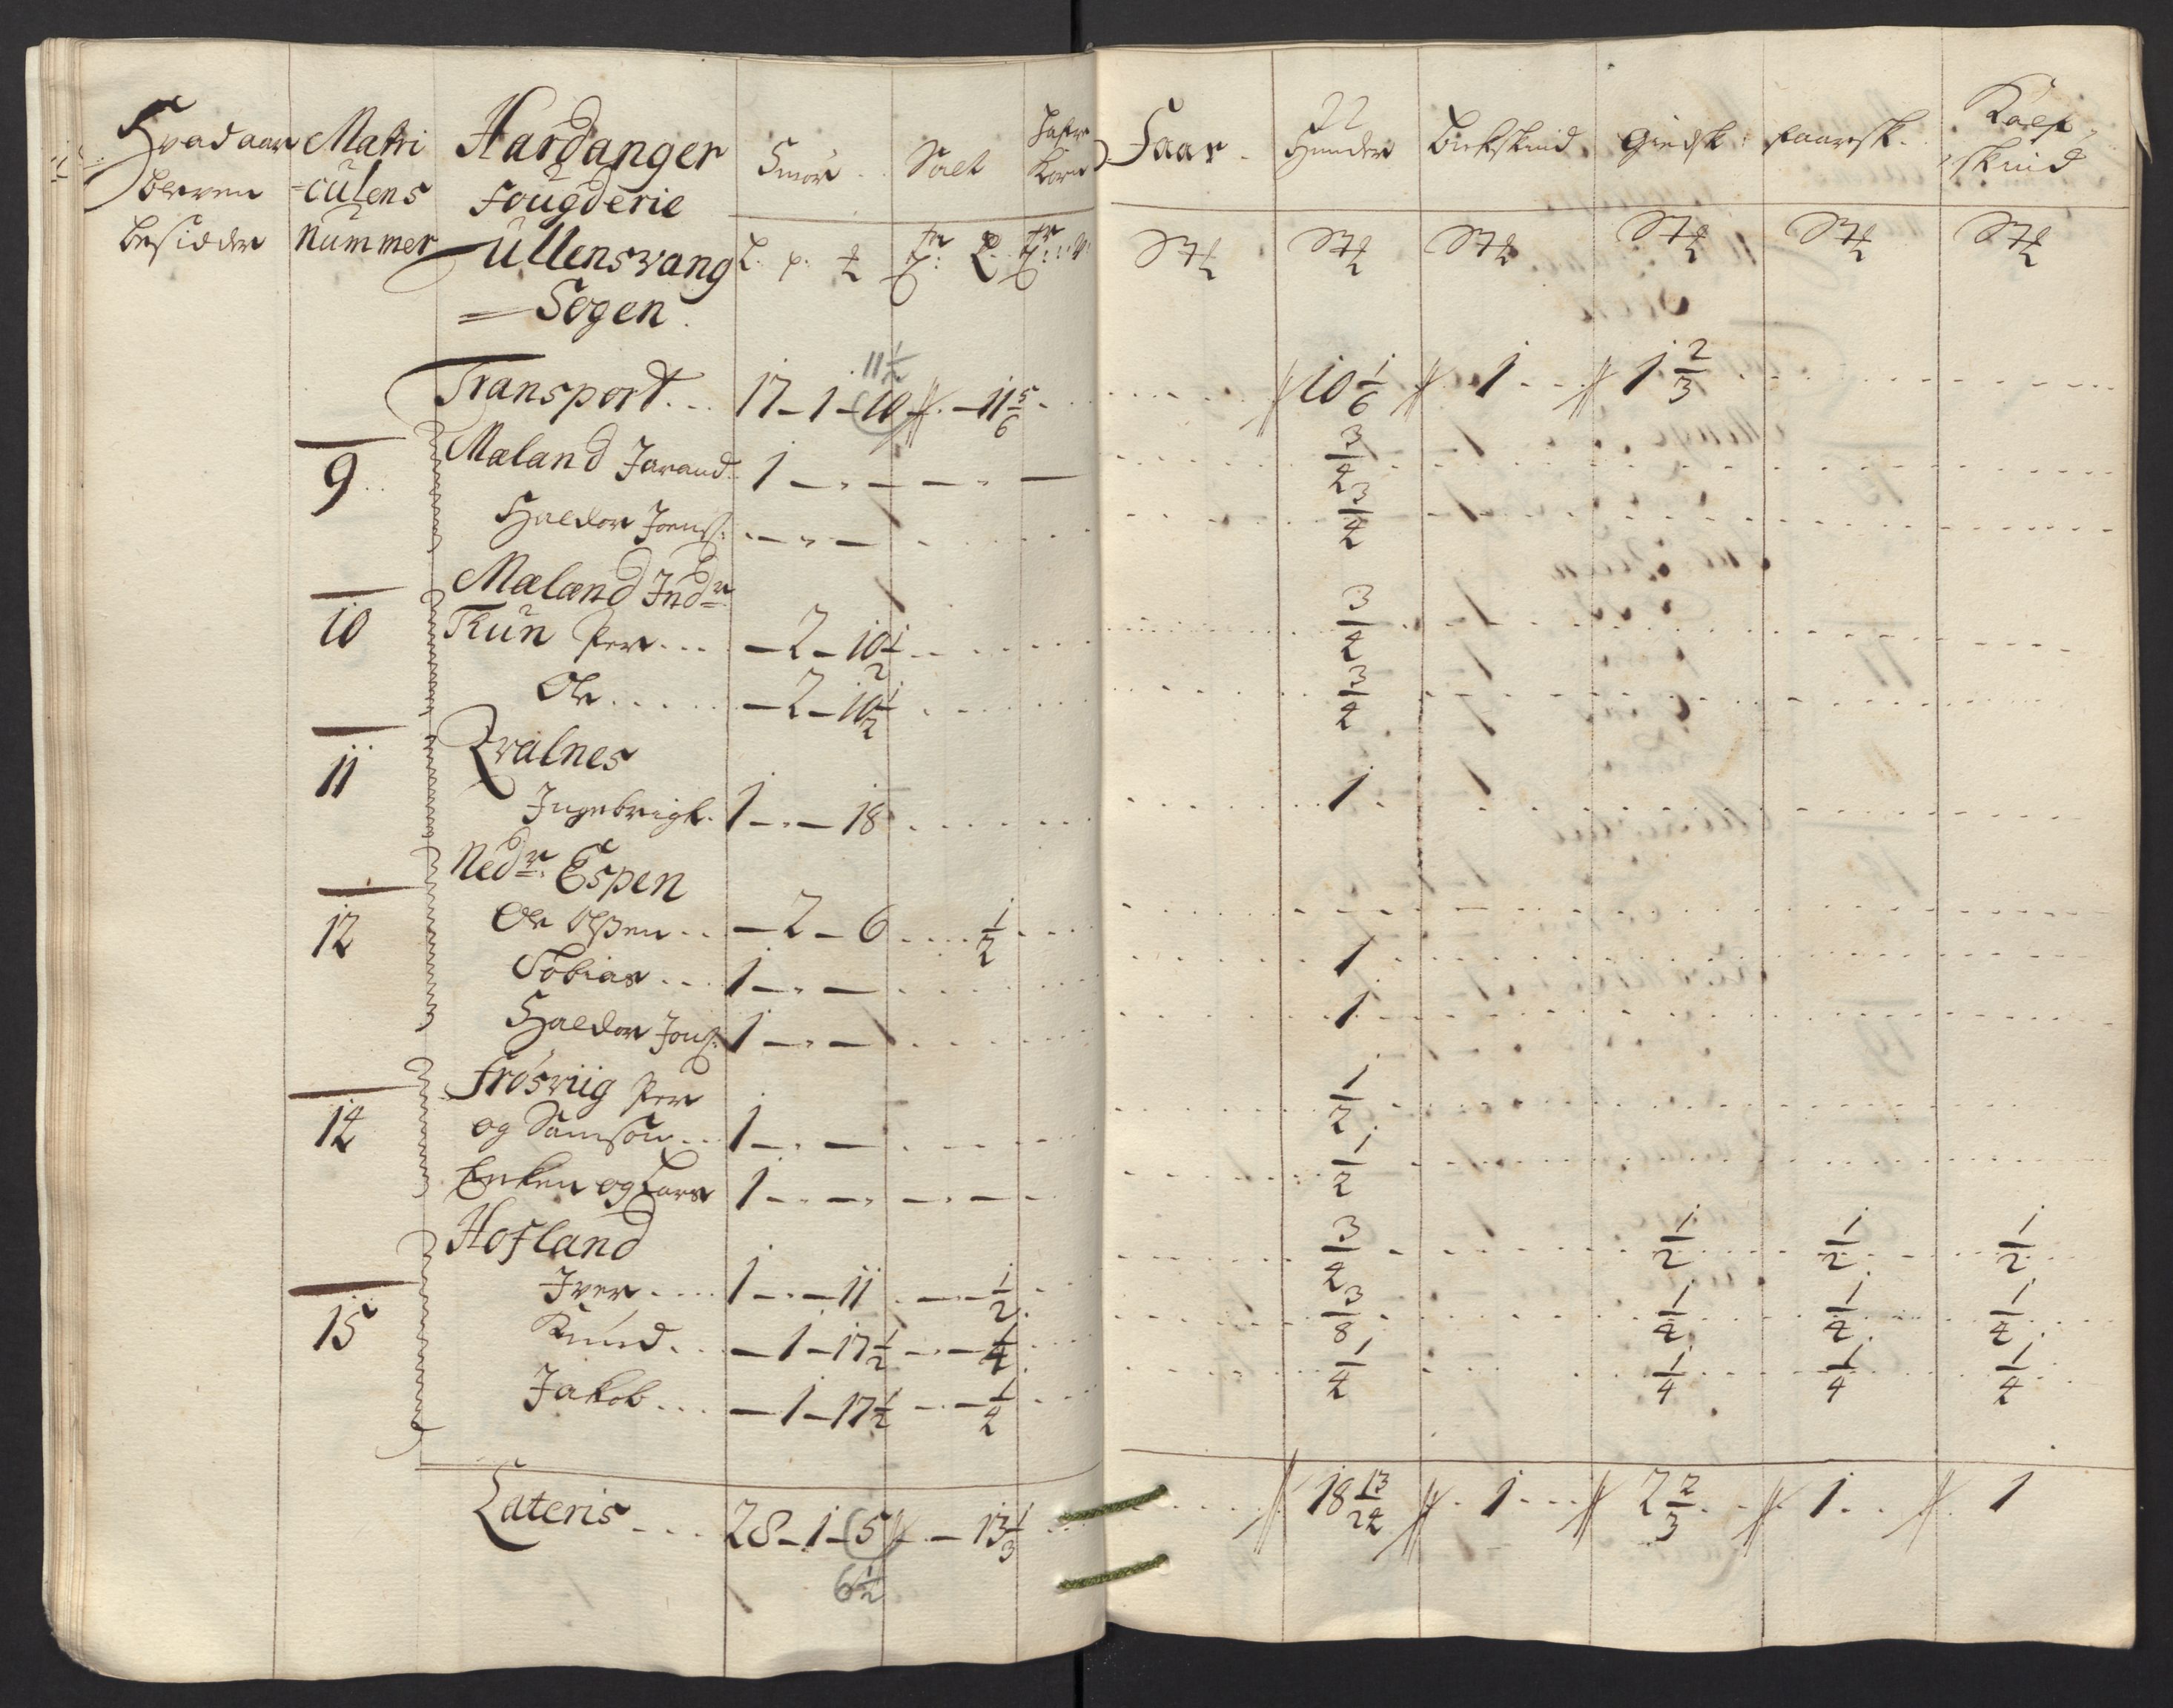 Hvad aar Matri Hardanger Smör Salt Korn Faar Huuder Bukskind Giedsk: Faaresk. Kalf
-culens Fougderie skind
besidder Nummer Ullensvang L. p. ℔
Sogen
11½
Transport 17 - 1 - 10 11 5/6 10 1/6 1 1 2/3
9 Mæland Jarand 1 3/4
Haldor Joens: 3/4
Mæland Indr
10 Tun Per - 2 - 10½ 3/4
Ole - 2 - 10½ 3/4
11 Qvalnes
Ingebrigt 1 - 18 1
Nedr: Espen
12 Ole Olsen - 2 - 6 ½
Tobias 1 1
Haldor Jons: 1 1
Frösviig Per
14 og Samson 1 ½
Enken og Lars 1 ½
Hofland
15 Iver 1 - 11 ½ 3/4 ½ ½ ½
Knud - 1 - 17½ ¼ 3/8 ¼ ¼ ¼
Jakob - 1 - 17½ ¼ ¼ ¼ ¼ ¼
Lateris 28 - 1 - 5 13 1/3 18 13/24 1 2 2/3 1 1
6½